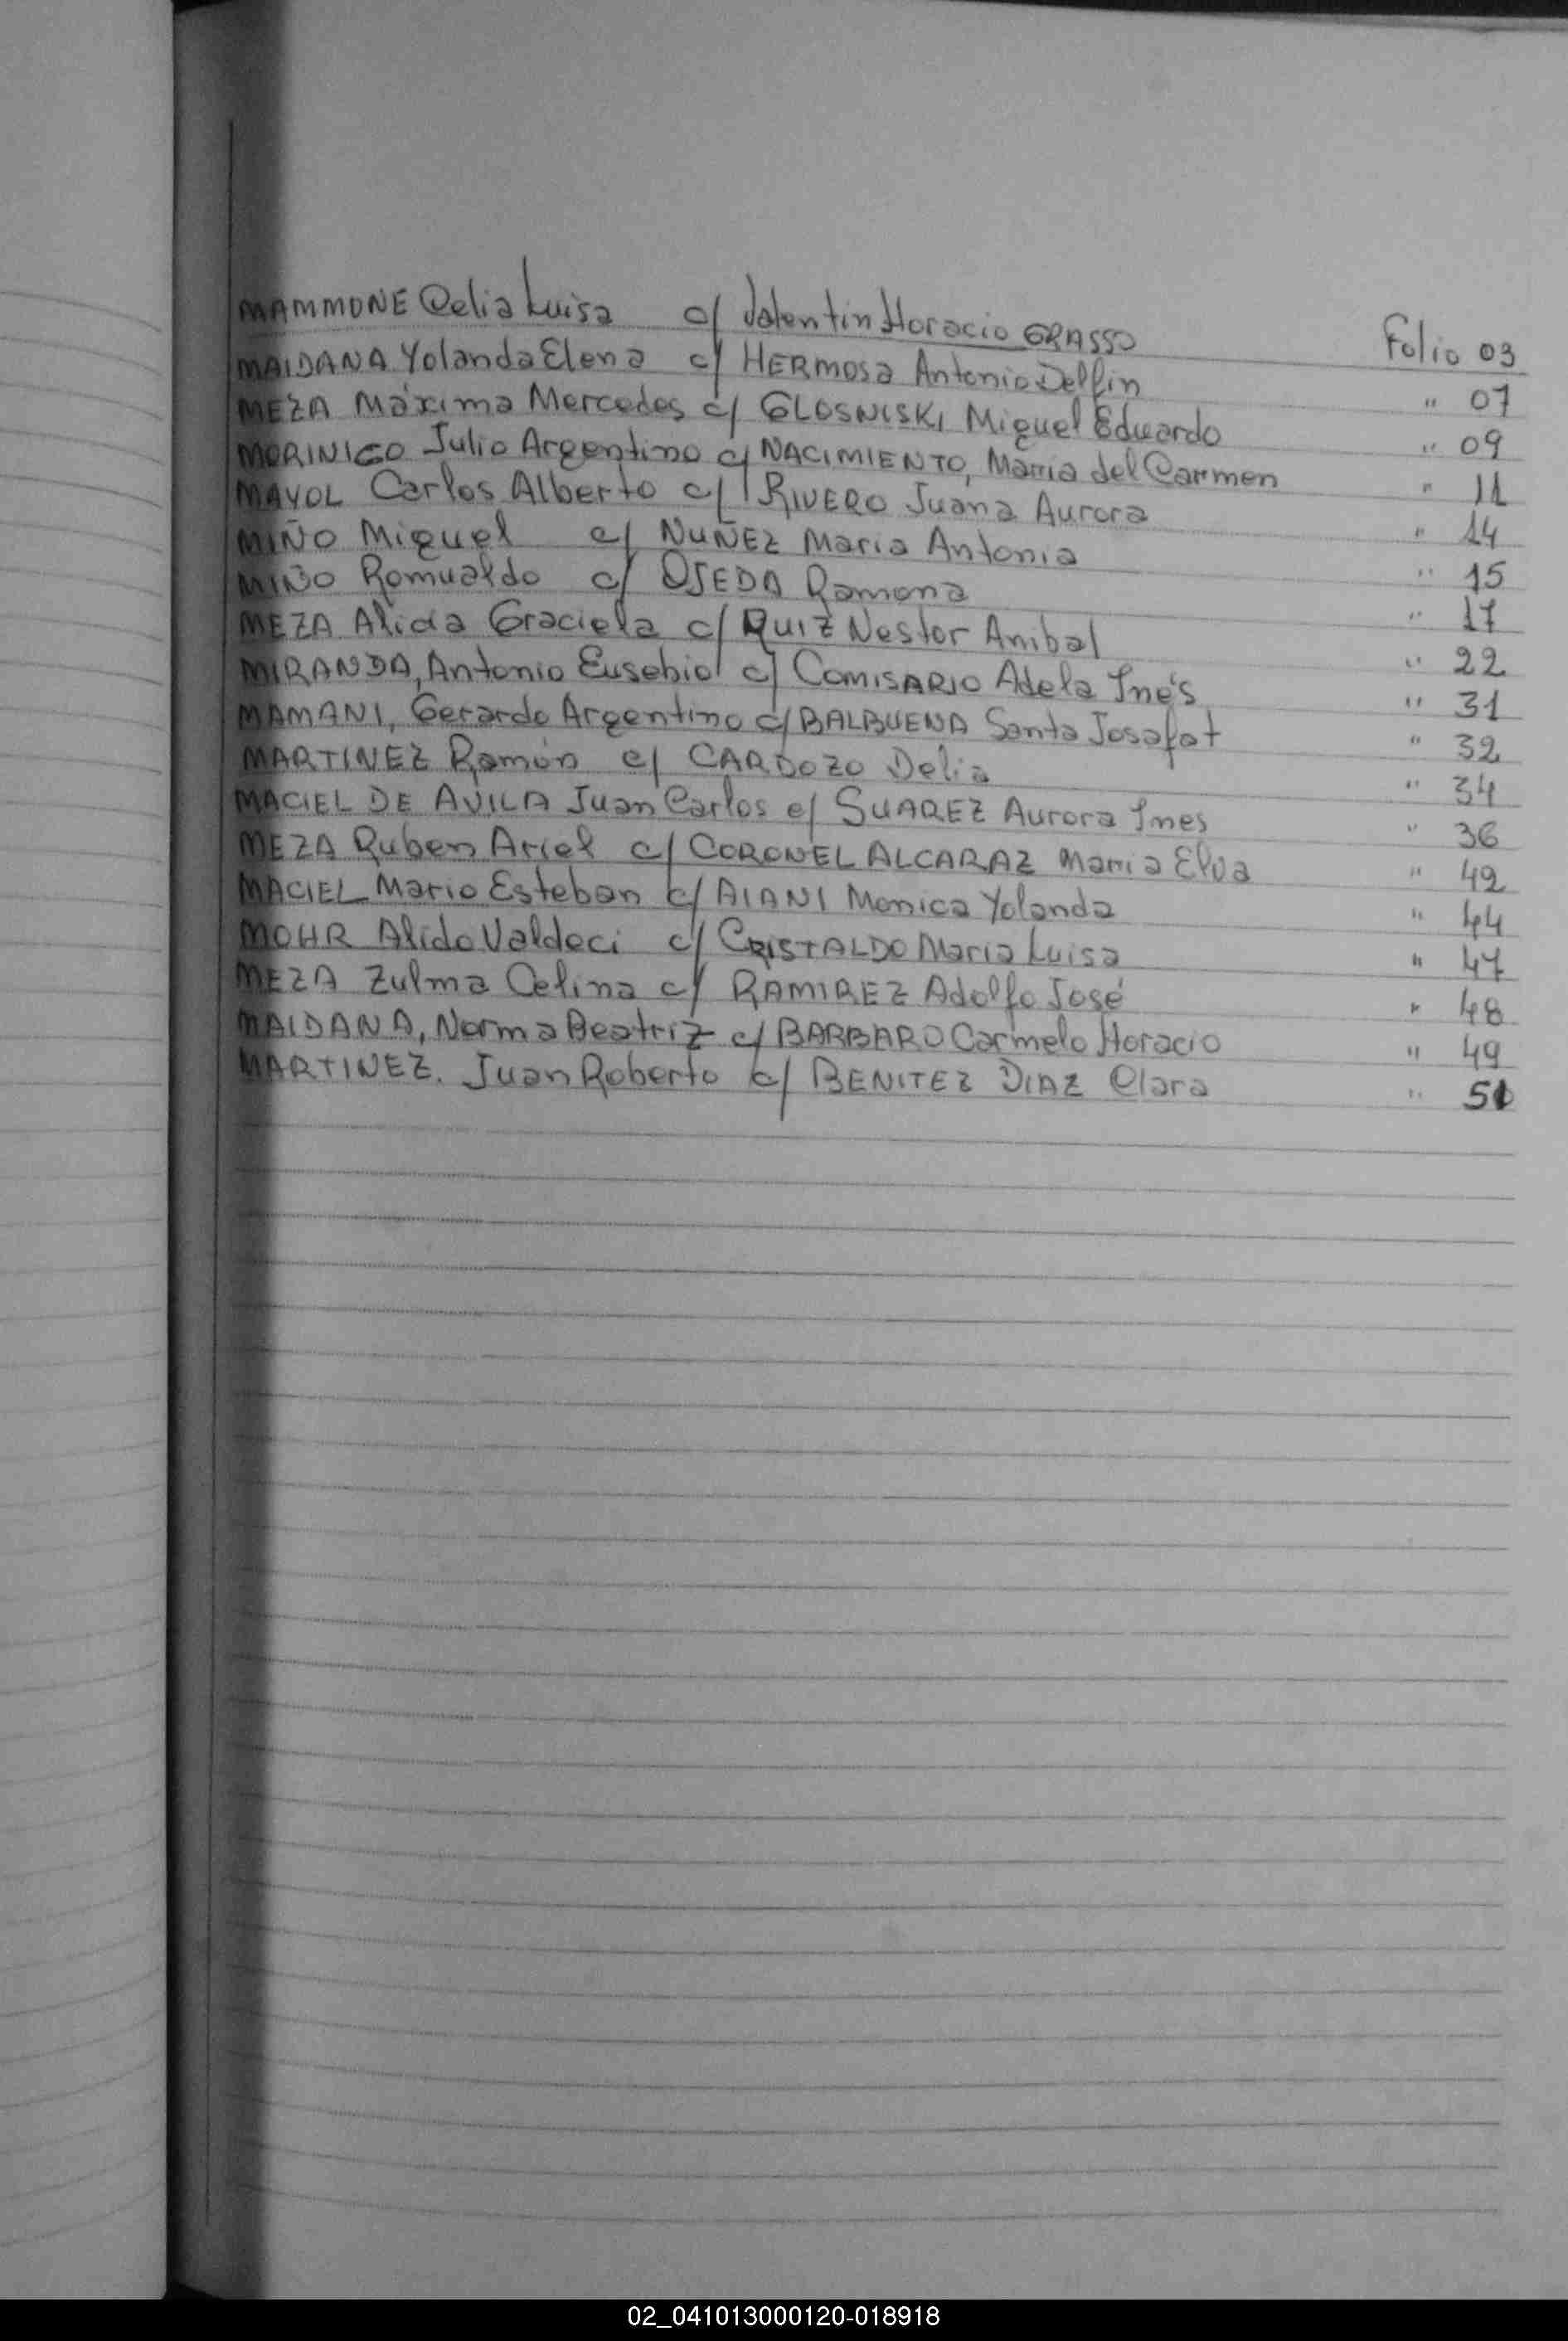 MAMMONE Celia Luisa c/ Valentin Horacio GRASSO Folio 03
MAIDANA Yolanda Elena c/ HERMOSA Antonio Delfin " 07
MEZA Máxima Mercedes c/ GLOSNISKI Miguel Eduardo " 09
MORINIGO Julio Argentino c/ NACIMIENTO, María del Carmen " 11
MAYOL Carlos Alberto c/ RIVERO Juana Aurora " 14
MIÑO Miguel c/ NUÑEZ Maria Antonia " 15
MIÑO Romualdo c/ OJEDA Ramona " 17
MEZA Alicia Graciela c/ RUIZ Nestor Anibal " 22
MIRANDA, Antonio Eusebio c/ COMISARIO Adela Inés " 31
MAMANI, Gerardo Argentino c/ BALBUENA Santa Josafat " 32
MARTINEZ Ramón c/ CARDOZO Delia " 34
MACIEL DE AVILA Juan Carlos c/ SUAREZ Aurora Ines " 36
MEZA Ruben Ariel c/ CORONEL ALCARAZ Maria Elva " 42
MACIEL Mario Esteban c/ AIANI Monica Yolanda " 44
MOHR Alido Valdeci c/ CRISTALDO Maria Luisa " 47
MEZA Zulma Celina c/ RAMIREZ Adolfo José " 48
MAIDANA, Norma Beatriz c/ BARBARO Carmelo Horacio " 49
MARTINEZ. Juan Roberto c/ BENITEZ DIAZ Clara " 51
02_041013000120-018918